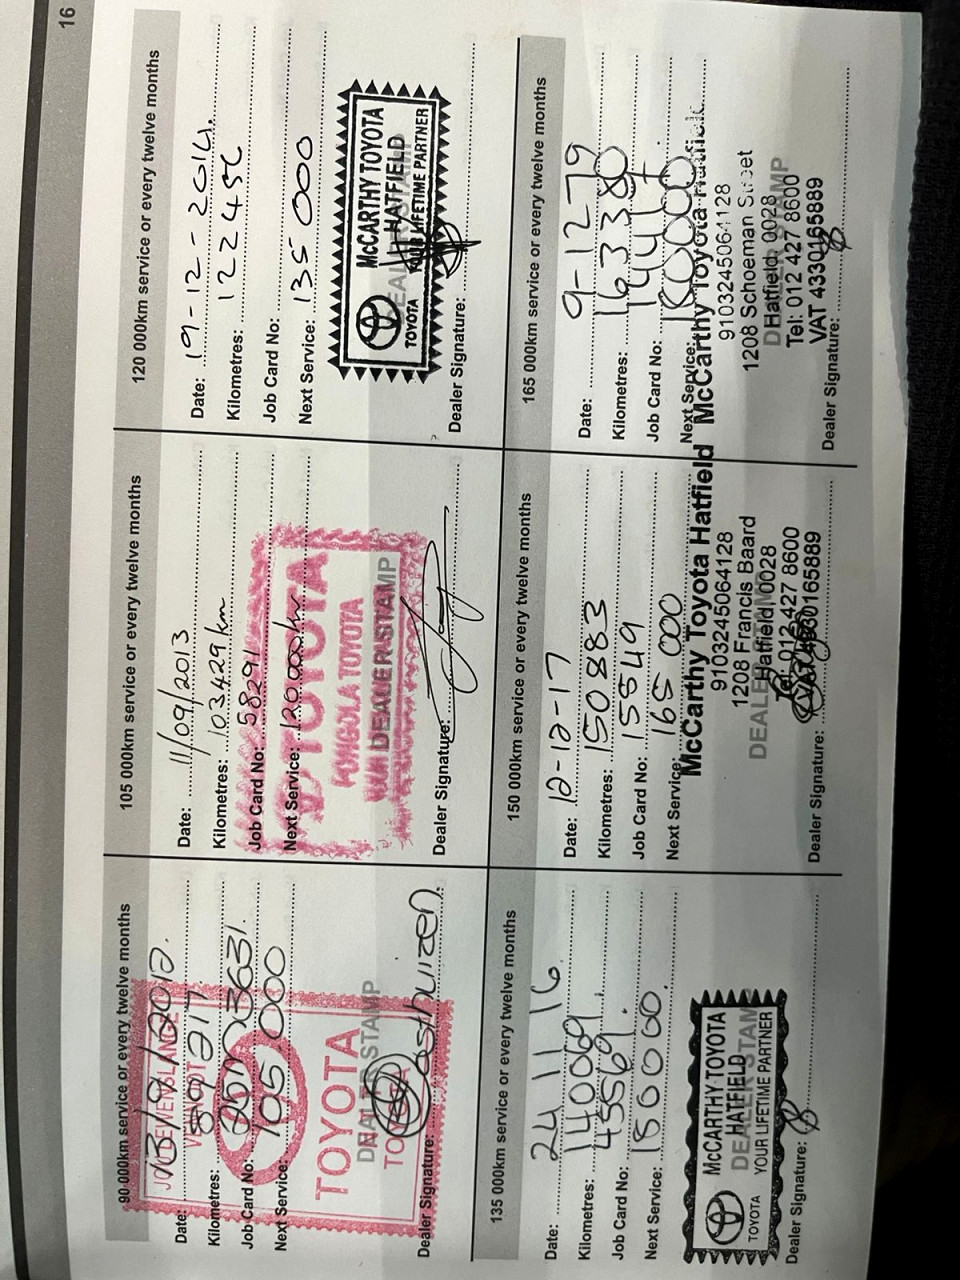 16
90 000km service or every twelve months
Date: 13/9/2012.
Kilometres: 89217
Job Card No:
Next Service: 105 000
TOYOTA
DEALER STAMP
Dealer Signature:
105 000km service or every twelve months
Date: 11/09/2013
Kilometres: 103429 km
Job Card No: 58291
Next Service: 120 000 km
TOYOTA
PONGOLA TOYOTA
DEALER STAMP
Dealer Signature:
120 000km service or every twelve months
Date: 19-12-2014.
Kilometres:
Job Card No:
Next Service: 135 000
McCARTHY TOYOTA
HATFIELD
DEALER STAMP
YOUR LIFETIME PARTNER
TOYOTA
Dealer Signature:
135 000km service or every twelve months
Date: 24 11 16.
Kilometres: 140069
Job Card No: 45569.
Next Service: 150000.
McCARTHY TOYOTA
HATFIELD
DEALER STAMP
YOUR LIFETIME PARTNER
TOYOTA
Dealer Signature:
150 000km service or every twelve months
Date: 12-12-17
Kilometres: 150883
Job Card No: 15549
Next Service: 165 000
McCarthy Toyota Hatfield
9103245064128
1208 Francis Baard
Hatfield 0028
DEALER
Tel: 012 427 8600
VAT 4330165889
Dealer Signature:
165 000km service or every twelve months
Date: 9-12
Kilometres: 163380
Job Card No:
Next Service: 180000
McCarthy Toyota Hatfield
9103245064128
1208 Schoeman Street
Hatfield, 0028
DEALER STAMP
Tel: 012 427 8600
VAT 4330165889
Dealer Signature: